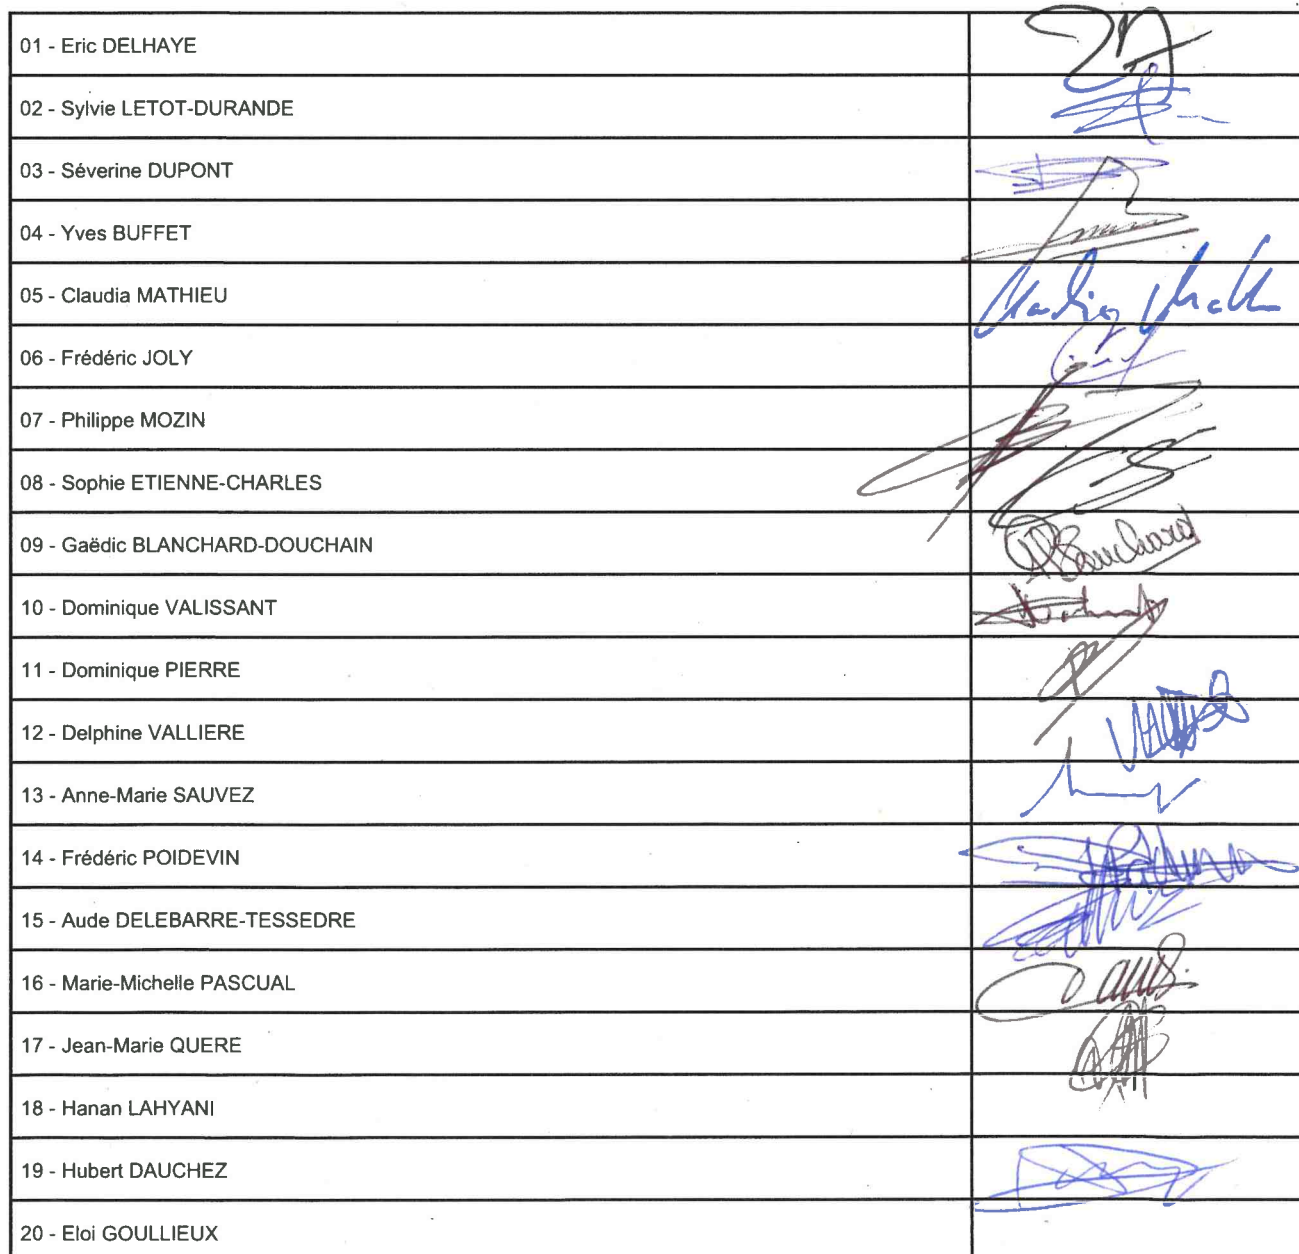 01 - Eric DELHAYE
02 - Sylvie LETOT-DURANDE
03 - Séverine DUPONT
04 - Yves BUFFET
05 - Claudia MATHIEU
06 - Frédéric JOLY
07 - Philippe MOZIN
08 - Sophie ETIENNE-CHARLES
09 - Gaëdic BLANCHARD-DOUCHAIN
10 - Dominique VALISSANT
11 - Dominique PIERRE
12 - Delphine VALLIERE
13 - Anne-Marie SAUVEZ
14 - Frédéric POIDEVIN
15 - Aude DELEBARRE-TESSEDRE
16 - Marie-Michelle PASCUAL
17 - Jean-Marie QUERE
18 - Hanan LAHYANI
19 - Hubert DAUCHEZ
20 - Eloi GOULLIEUX